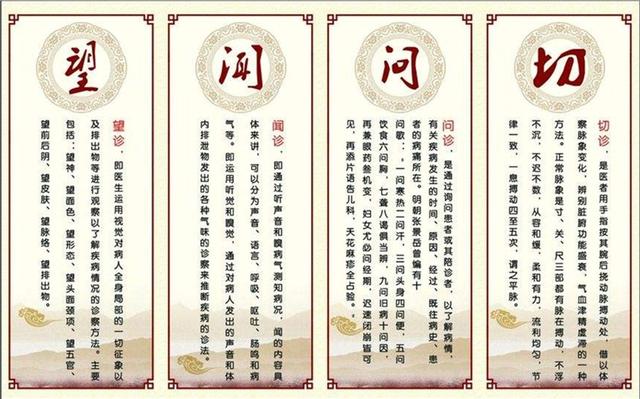 望
望诊，即医生运用视觉对病人全身局部的一切征象以
及排出物等进行观察以了解疾病情况的诊察方法。主要
包括：望神、望面色、望形态、望头面颈项、望五官、
望前后阴、望皮肤、望脉络、望排出物。
闻
闻诊，即通过听声音和嗅病气测知病况，闻的内容具
体来讲，可以分为声音、语言、呼吸、呕吐、肠鸣和病
气等。即运用听觉和嗅觉，通过对病人发出的声音和体
内排泄物发出的各种气味的诊察来推断疾病的诊法。
问
问诊，是通过询问患者或其陪诊者，以了解病情，
有关疾病发生的时间、原因、经过、既往病史、患
者的病痛所在。明朝张景岳曾编有十
问歌：“一问寒热二问汗，三问头身四问便，五问
饮食六问胸，七聋八渴俱当辨，九问旧病十问因，
再兼服药参机变，妇女尤必问经期，迟速闭崩皆可
见，再添片语告儿科，天花麻疹全占验。”
切
切诊，是医者用手指按其腕后挠动脉搏动处，借以体
察脉象变化，辨别脏腑功能盛衰，气血津精虚滞的一种
方法。正常脉象是寸、关、尺三部都有脉在搏动，不浮
不沉，不迟不数，从容和缓，柔和有力，流利均匀，节
律一致，一息搏动四至五次，谓之平脉。